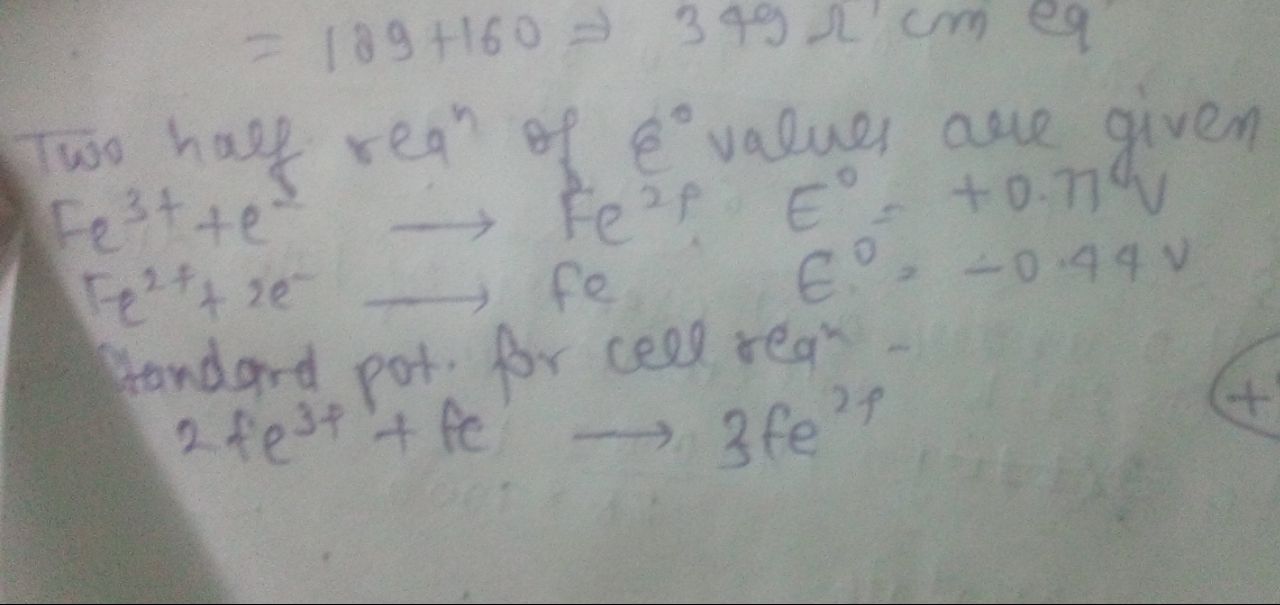 = 189+160 ⇒ 349 Ω⁻¹ cm eq
Two half reaⁿ of E° values are given
Fe³⁺ + e⁻ ⟶ Fe²⁺ E° = +0.77 V
Fe²⁺ + 2e⁻ ⟶ fe E° = -0.44 V
Standard pot. for cell reaⁿ -
2fe³⁺ + fe ⟶ 3fe²⁺
(+